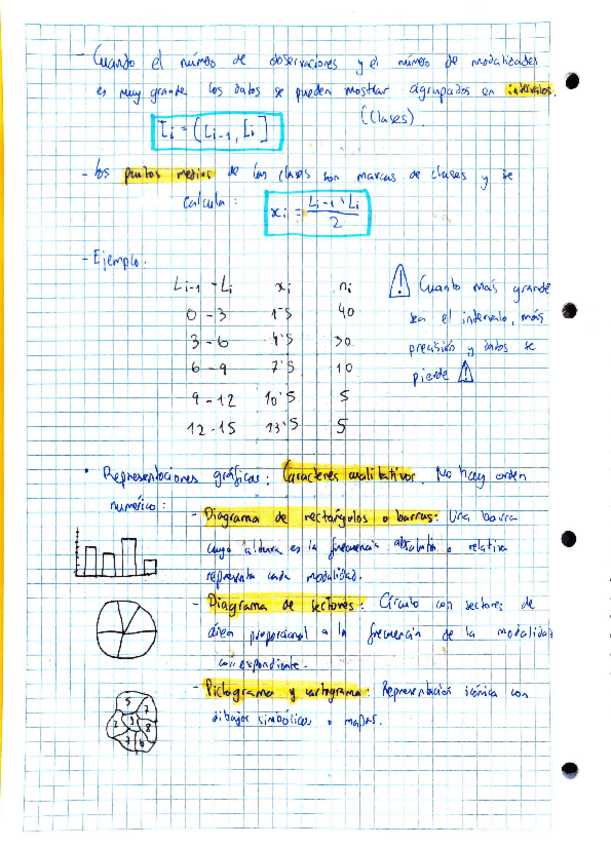 - Cuando el número de observaciones y el número de modalidades
es muy grande los datos se pueden mostrar agrupados en intervalos.
(Clases)
Ii = (Li-1, Li]
- Los puntos medios de las clases son marcas de clases y se
calcula:
xi = Li-1 + Li / 2
- Ejemplo:
Li-1 - Li xi ni
0 - 3 1'5 40
3 - 6 4'5 30
6 - 9 7'5 10
9 - 12 10'5 5
12 - 15 13'5 5
⚠ Cuanto más grande
sea el intervalo, más
precisión y datos se
pierde ⚠
• Representaciones gráficas: Caracteres cualitativos. No hay orden
numérico:
- Diagrama de rectángulos o barras: Una barra
cuya altura es la frecuencia absoluta o relativa
representa cada modalidad.
- Diagrama de sectores: Círculo con sectores de
área proporcional a la frecuencia de la modalidad
correspondiente.
- Pictograma y cartograma: Representación icónica con
dibujos simbólicos o mapas.
5 7
2 3 8
7 6